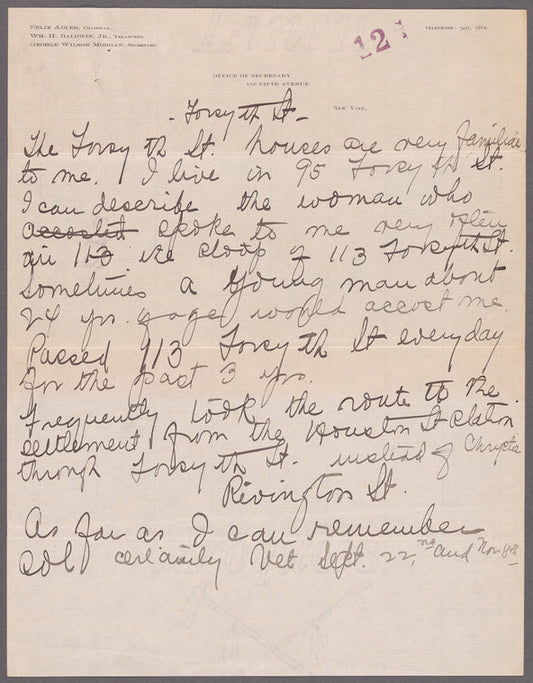 FELIX ADLER, CHAIRMAN.
WM. H. BALDWIN, JR., TREASURER.
GEORGE WILSON MORGAN, SECRETARY.
12
OFFICE OF SECRETARY
156 FIFTH AVENUE.
NEW YORK,
- Forsyth St -
The Forsyth St. houses are very familiar
to me. I live in 95 Forsyth St.
I can describe the woman who
accosted spoke to me very often
113 the stoop of 113 Forsyth St.
Sometimes a young man about
24 yrs. of age would accost me.
Passed 113 Forsyth St everyday
for the past 3 yrs.
Frequently took the route to the
settlement from the Houston St station
through Forsyth St. instead of Chrystie
Rivington St.
As far as I can remember
certainly bet Sept. 22,nd and Nov. 8th